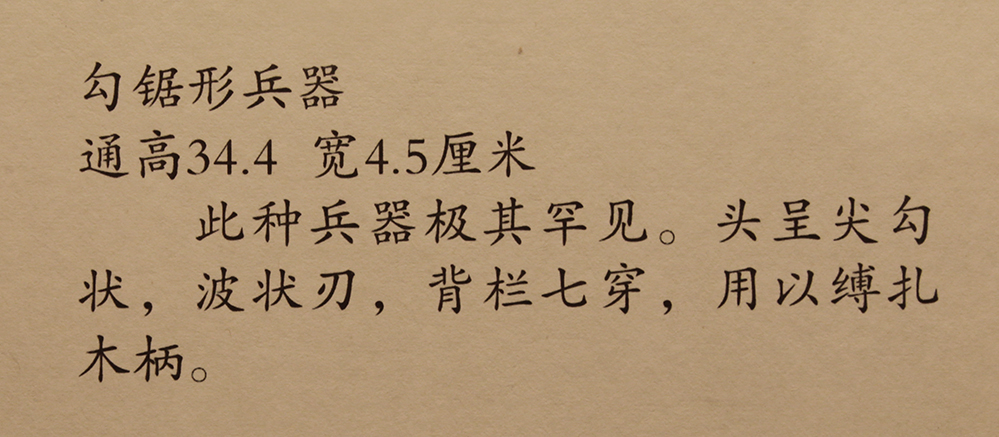 勾锯形兵器
通高34.4 宽4.5厘米
此种兵器极其罕见。头呈尖勾
状，波状刃，背栏七穿，用以缚扎
木柄。